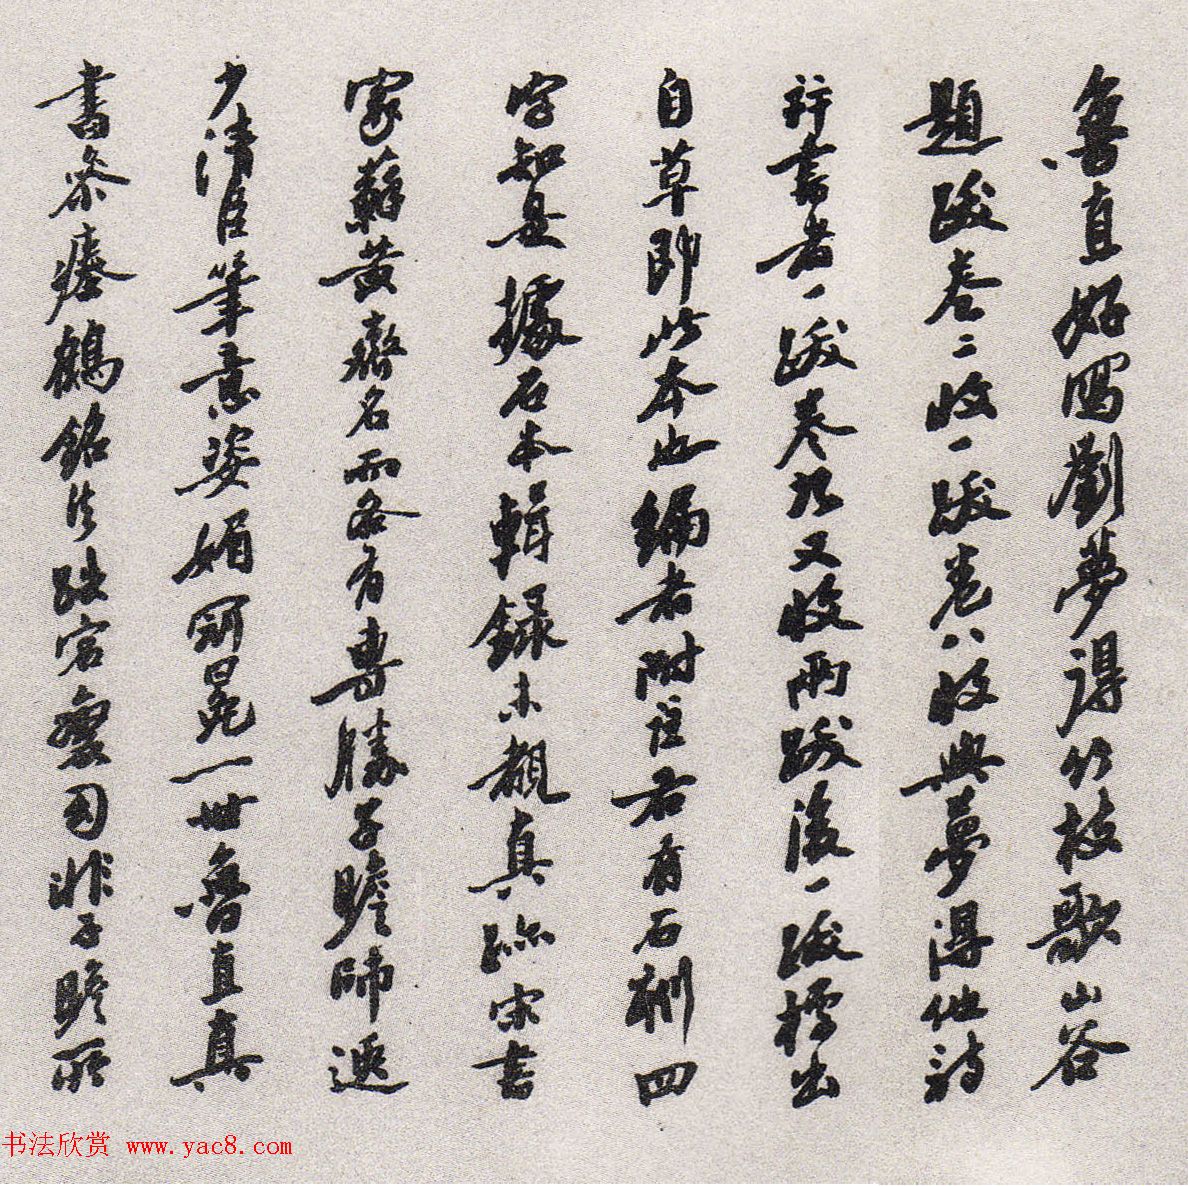 魯直好寫劉夢得竹枝歌山谷
題跋卷二收一跋卷八收與夢得他詩
行書者一跋卷九又收兩跋後一跋標出
自草即此本也編者附注右有石刻四
字知是據石本輯錄未覩真跡宋書
家蘇黃齊名而各有專勝子瞻師遜
少清臣筆意姿媚照晃一世魯直真
書參瘞鶴銘法跌宕奧勁非子瞻所
书法欣赏 www.yac8.com